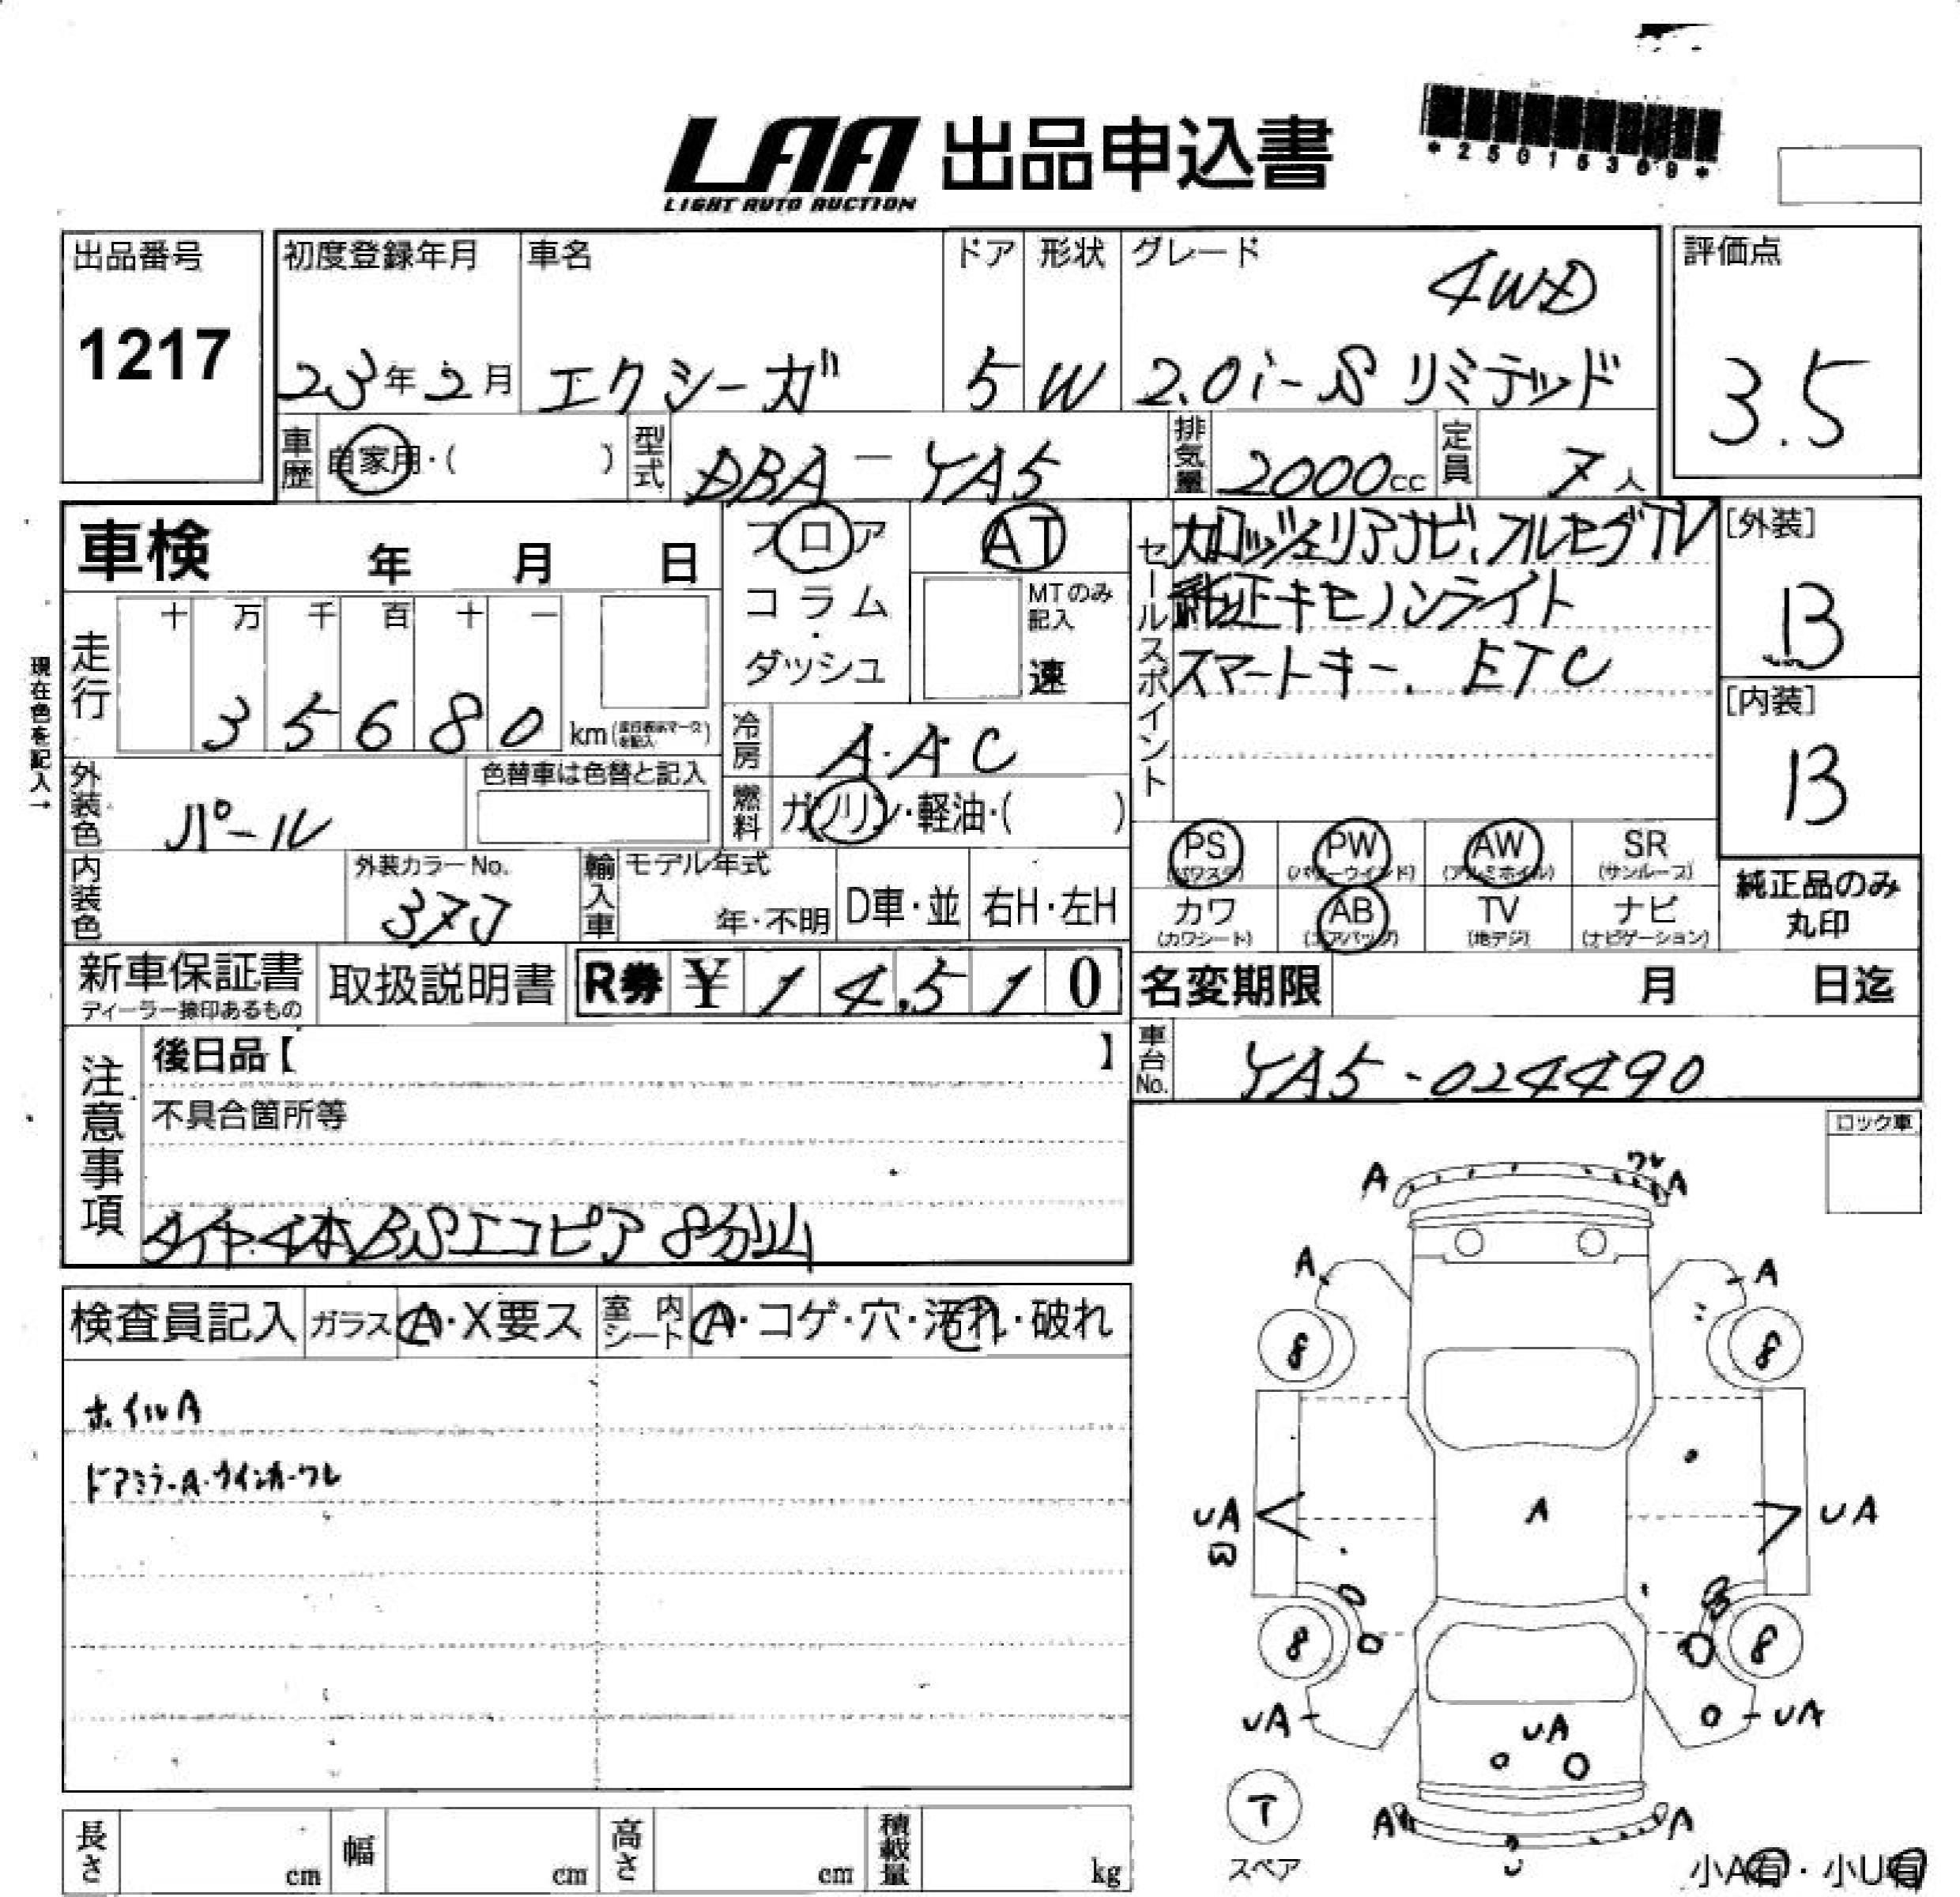 LAA 出品申込書
LIGHT AUTO AUCTION
*25016369*
出品番号
1217
初度登録年月
23年2月
車名
エクシーガ
ドア
5
形状
W
グレード
4WD
2.0i-S リミテッド
評価点
3.5
車歴
自家用・( )
型式
DBA-YA5
排気量
2000cc
定員
7人
車検 年 月 日
フロア
コラム
・
ダッシュ
AT
MTのみ記入
速
セールスポイント
カロッツェリアナビ、フルセグTV
純正キセノンライト
スマートキー、ETC
[外装]
B
[内装]
B
現在色を記入→
走行
十 万 千 百 十 一
3 5 6 8 0 km
冷房
A.A.C
燃料
ガソリン・軽油・( )
外装色
パール
色替車は色替と記入
PS (パワステ)
PW (パワーウインド)
AW (アルミホイル)
SR (サンルーフ)
カワ (カワシート)
AB (エアバッグ)
TV (地デジ)
ナビ (ナビゲーション)
純正品のみ
丸印
内装色
外装カラーNo.
37J
輸入車
モデル年式
年・不明
D車・並
右H・左H
新車保証書
ディーラー捺印あるもの
取扱説明書
R券 ¥ 14,510
名変期限 月 日迄
車台No.
YA5-024490
注意事項
後日品【 】
不具合箇所等
タイヤ4本BSエコピア8分山
ロック車
検査員記入
ガラス A・X要ス
室内シート A・コゲ・穴・汚れ・破れ
ホイルA
ドアミラーA・ウインカーワレ
ワレ
A
A
A
A
8
8
UA
A
UA
8
8
UA
UA
UA
A
A
U
スペア
小A有・小U有
長さ cm
幅 cm
高さ cm
積載量 kg